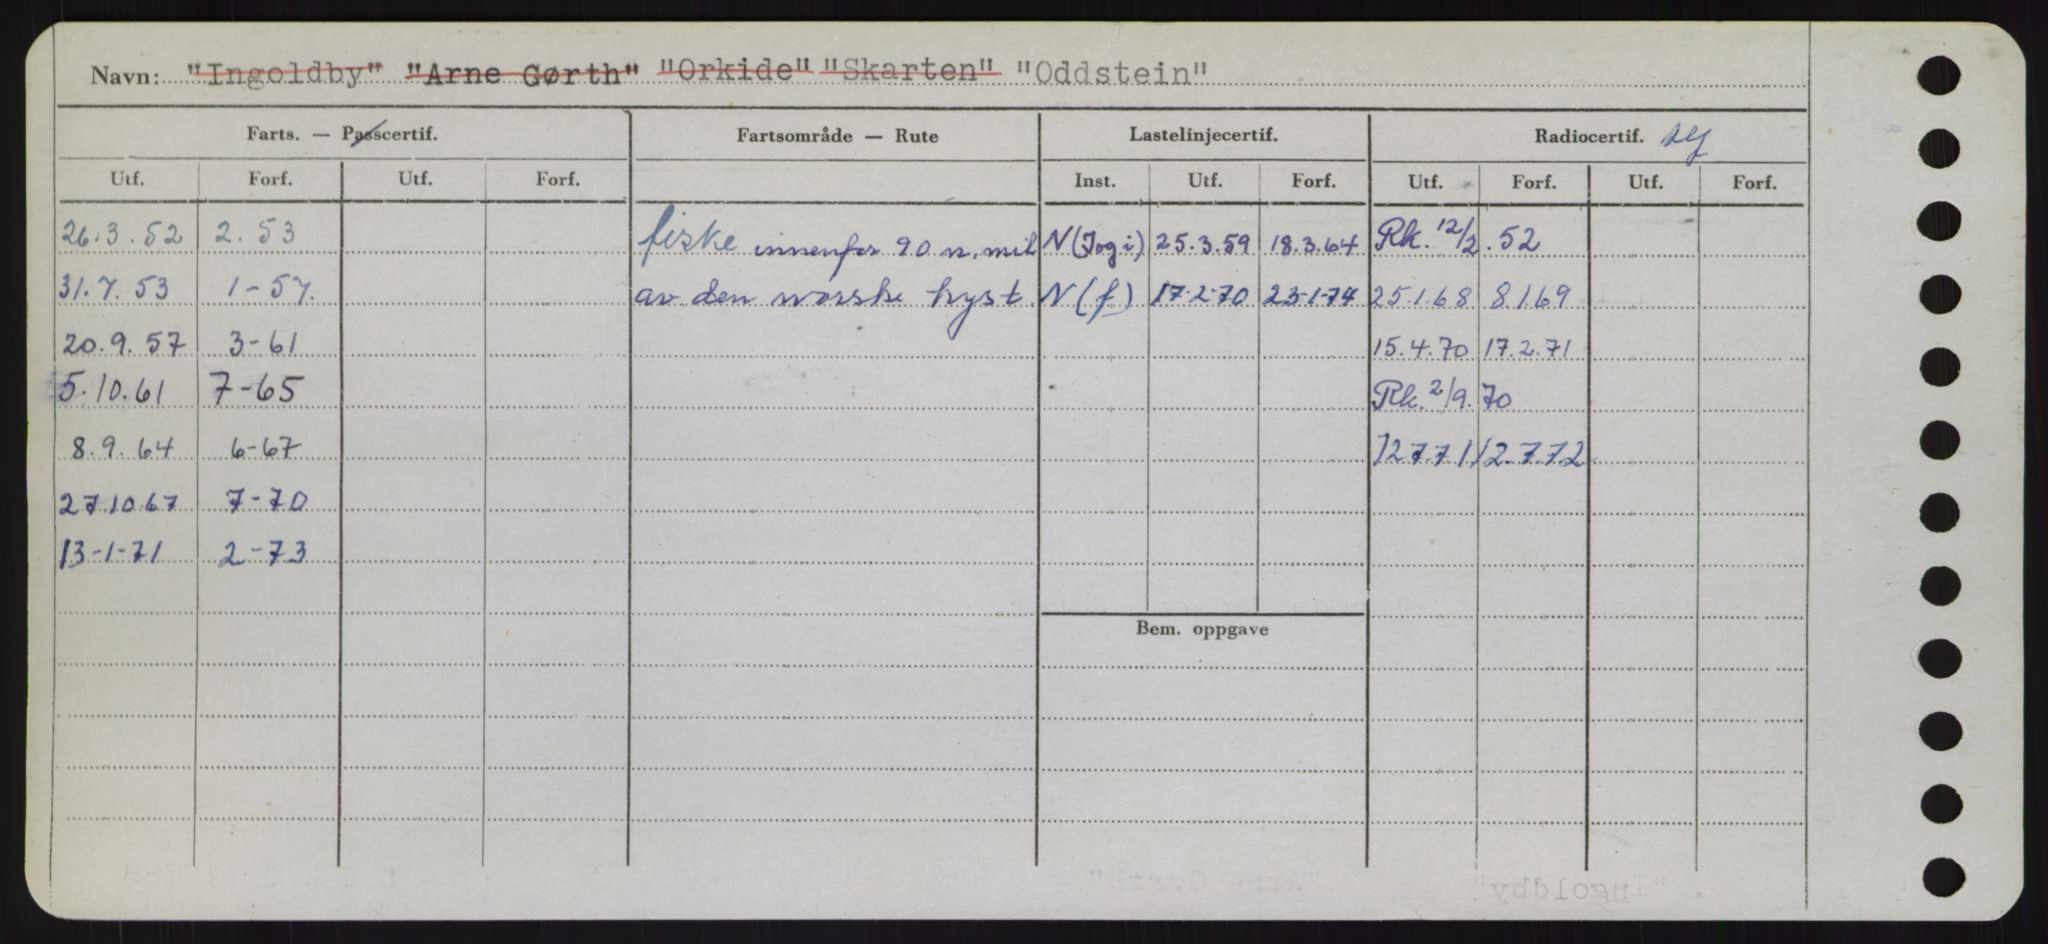 Navn: "Ingoldby" "Arne Gørth" "Orkide" "Skarten" "Oddstein"
Farts. — Passcertif. Fartsområde — Rute Lastelinjecertif. Radiocertif.
Utf. Forf. Utf. Forf. Inst. Utf. Forf. Utf. Forf. Utf. Forf.
26.3.52 2.53 fiske innenfor 20 n. mil N (Jogi) 25.3.59 18.3.64 Rk. 12/2.52
31.7.53 1-57. av den norske kyst. N (f) 17-2-70 23-1-74 25.1.68 8.1.69
20.9.57 3-61 15.4.70 17.2.71
5.10.61 7-65 Rk. 2/9.70
8.9.64 6-67 12.7.71 12.7.72
27.10.67 7-70
13-1-71 2-73
Bem. oppgave
"Ingoldby" "Arne Gørth"